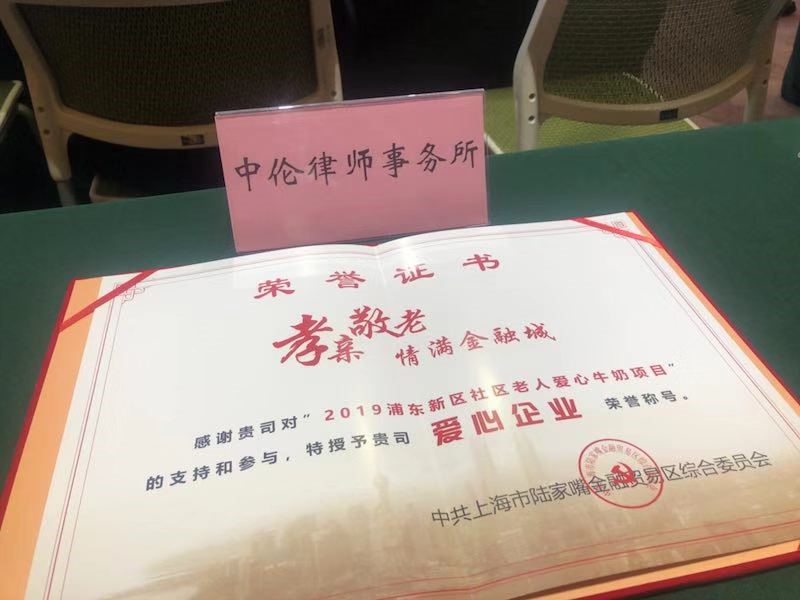 中伦律师事务所
荣誉证书
孝亲敬老 情满金融城
感谢贵司对"2019浦东新区社区老人爱心牛奶项目"
的支持和参与，特授予贵司 爱心企业 荣誉称号。
中共上海市陆家嘴金融贸易区综合委员会